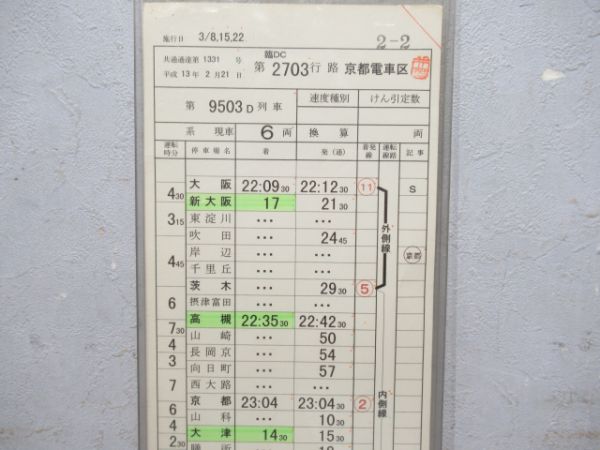 施行日 3/8,15,22
2-2
共通通達第 1331 号
平成 13年 2月21日
臨DC
第 2703 行 路 京都電車区
第 9503 D 列 車 速度種別 けん引定数
系 現車 6 両 換 算 両
運転時分 停 車 場 名 着 発 (通) 着発線 運転線路 記 事
大 阪 22:09 30 22:12 30 11 S
4 30
新大阪 17 21 30
3 15
東淀川 ... ...
吹 田 ... 24 45
外側線
4 45
岸 辺 ... ...
京都
千里丘 ... ...
茨 木 ... 29 30 5
6
摂津富田 ... ...
高 槻 22:35 30 22:42 30
7 30
山 崎 ... 50
4
長岡京 ... 54
3
向日町 ... 57
7
西大路 ... ...
内側線
京 都 23:04 23:04 30 2
6
山 科 ... 10 30
4
大 津 14 30 15 30
2 30
膳 所